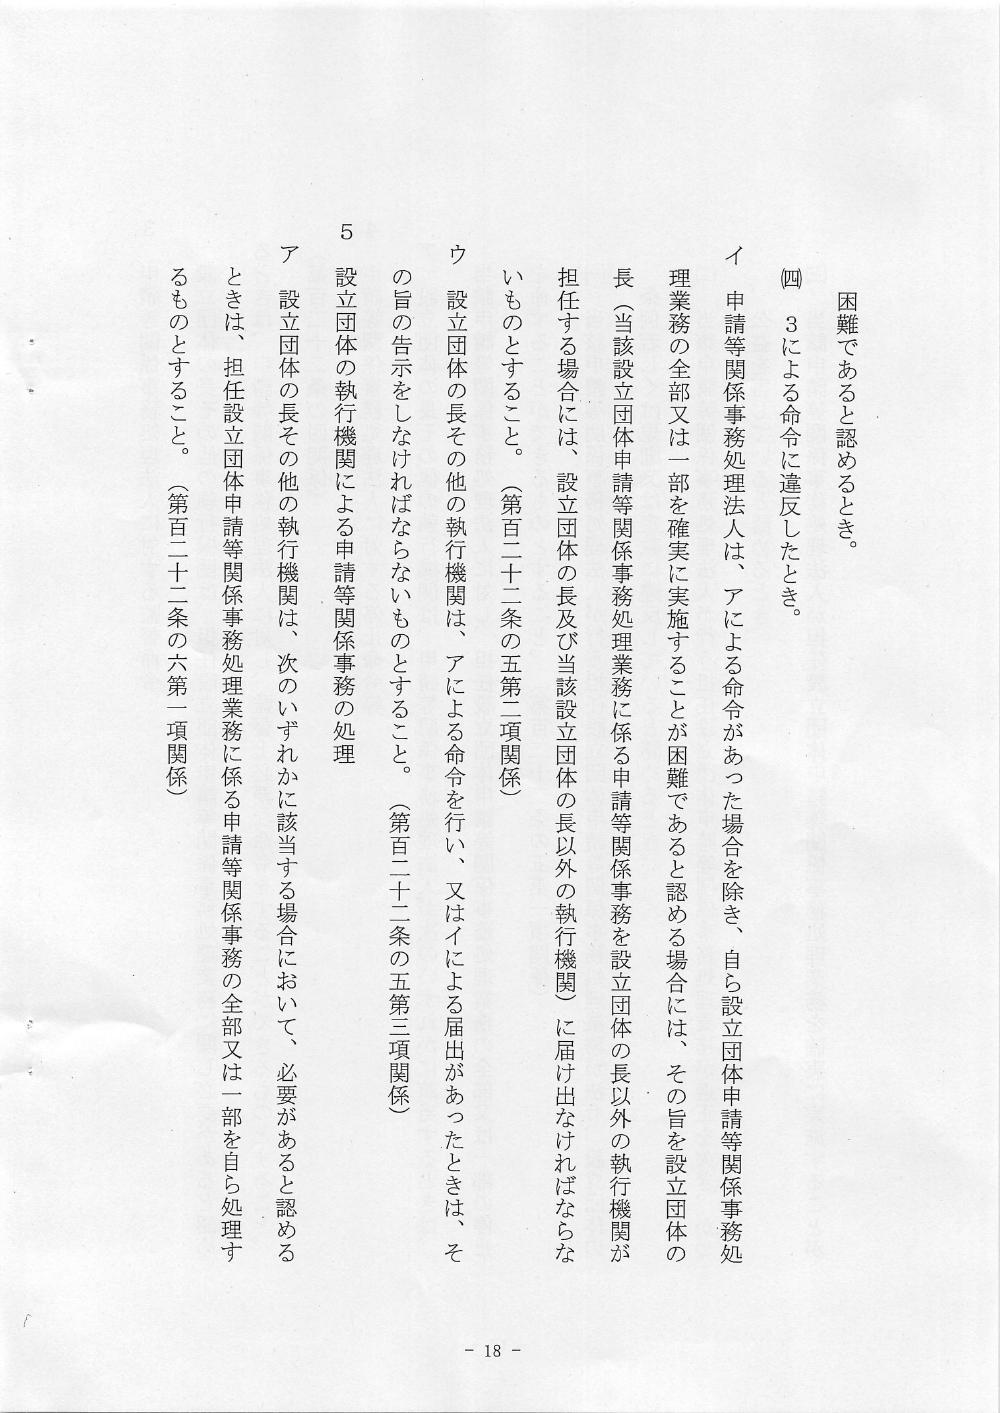 困難であると認めるとき。
㈣　３による命令に違反したとき。
イ　申請等関係事務処理法人は、アによる命令があった場合を除き、自ら設立団体申請等関係事務処
理業務の全部又は一部を確実に実施することが困難であると認める場合には、その旨を設立団体の
長（当該設立団体申請等関係事務処理業務に係る申請等関係事務を設立団体の長以外の執行機関が
担任する場合には、設立団体の長及び当該設立団体の長以外の執行機関）に届け出なければならな
いものとすること。（第百二十二条の五第二項関係）
ウ　設立団体の長その他の執行機関は、アによる命令を行い、又はイによる届出があったときは、そ
の旨の告示をしなければならないものとすること。（第百二十二条の五第三項関係）
５　設立団体の執行機関による申請等関係事務の処理
ア　設立団体の長その他の執行機関は、次のいずれかに該当する場合において、必要があると認める
ときは、担任設立団体申請等関係事務処理業務に係る申請等関係事務の全部又は一部を自ら処理す
るものとすること。（第百二十二条の六第一項関係）
- 18 -